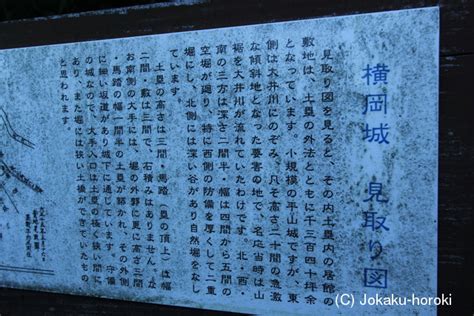 横岡城 見取り図
見取り図を見ると、その内土塁内の居館の
敷地は、土塁の外法とともに千三百四十坪余
となっています。小規模の平山城ですが、東
側は大井川にのぞみ、凡そ高さ二十間の急激
な傾斜地となった要害の地で、名応当時は山
裾を大井川が流れていたわけです。北・西・
南の三方は深さ二間半、幅は四間から五間の
空堀が廻り、特に西側の防備を厚くして二重
堀にし、北側には深い谷があり自然堀をなし
ています。
土塁の高さは三間・馬踏(塁の頂上)は
二間・敷は三間で、石積みはありません。な
お南側の大手には、堀の外野に更に高さ三間
・馬踏の幅一間半の土塁が築かれ、その外側
に細い坂道があり城下に通じています。守備
の城なので、大手入口は土塁の極く狭い間に
あり、また堀には狭い土橋ができていたもの
と思われます。
(C) Jokaku-horoki